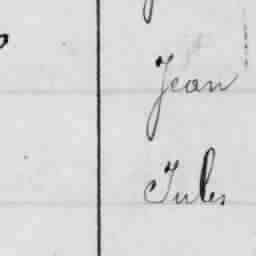 Jean
Jules